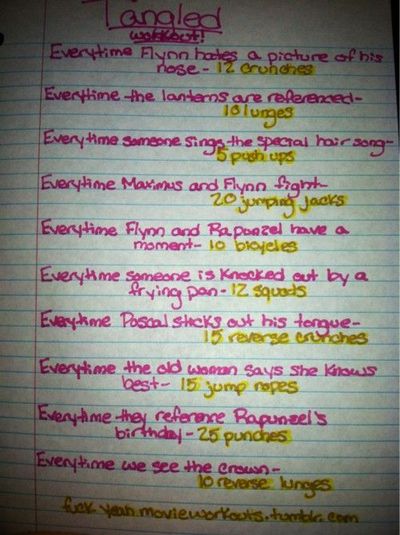 Tangled
workout!
Everytime Flynn hates a picture of his
nose - 12 crunches
Everytime the lanterns are referenced -
10 lunges
Everytime someone sings the special hair song -
5 push ups
Everytime Maximus and Flynn fight -
20 jumping jacks
Everytime Flynn and Rapunzel have a
moment - 10 bicycles
Everytime someone is knocked out by a
frying pan - 12 squads
Everytime Pascal sticks out his tongue -
15 reverse crunches
Everytime the old woman says she knows
best - 15 jump ropes
Everytime they reference Rapunzel's
birthday - 25 punches
Everytime we see the crown -
10 reverse lunges
fuck yeah.movieworkouts.tumblr.com